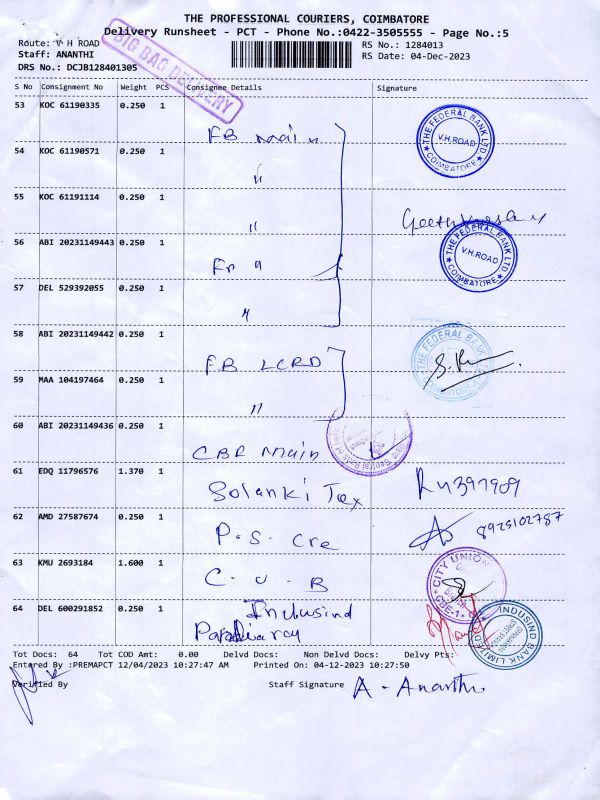 THE PROFESSIONAL COURIERS, COIMBATORE
Delivery Runsheet - PCT - Phone No.:0422-3505555 - Page No.:5
Route: V H ROAD
RS No.: 1284013
Staff: ANANTHI
RS Date: 04-Dec-2023
DRS No.: DCJB128401305
BIG BAG DELIVERY
S No Consignment No Weight PCS Consignee Details Signature
53 KOC 61190335 0.250 1
FB Main
THE FEDERAL BANK LTD V.H.ROAD COIMBATORE
54 KOC 61190571 0.250 1
"
55 KOC 61191114 0.250 1
"
56 ABI 20231149443 0.250 1
THE FEDERAL BANK LTD V.H.ROAD COIMBATORE
57 DEL 529392055 0.250 1
"
58 ABI 20231149442 0.250 1
FB LCRD
THE FEDERAL BANK
59 MAA 104197464 0.250 1
"
60 ABI 20231149436 0.250 1
Main
61 EDQ 11796576 1.370 1
Solanki Tex
62 AMD 27587674 0.250 1
P.S. Cre
8925102787
63 KMU 2693184 1.600 1
C.U.B
CITY UNION CBE-1
64 DEL 600291852 0.250 1
Indusind
INDUSIND BANK LIMITED
Tot Docs: 64 Tot COD Amt: 0.00 Delvd Docs: Non Delvd Docs: Delvy Pts:
Entered By :PREMAPCT 12/04/2023 10:27:47 AM Printed On: 04-12-2023 10:27:50
Verified By
Staff Signature A. Ananthi